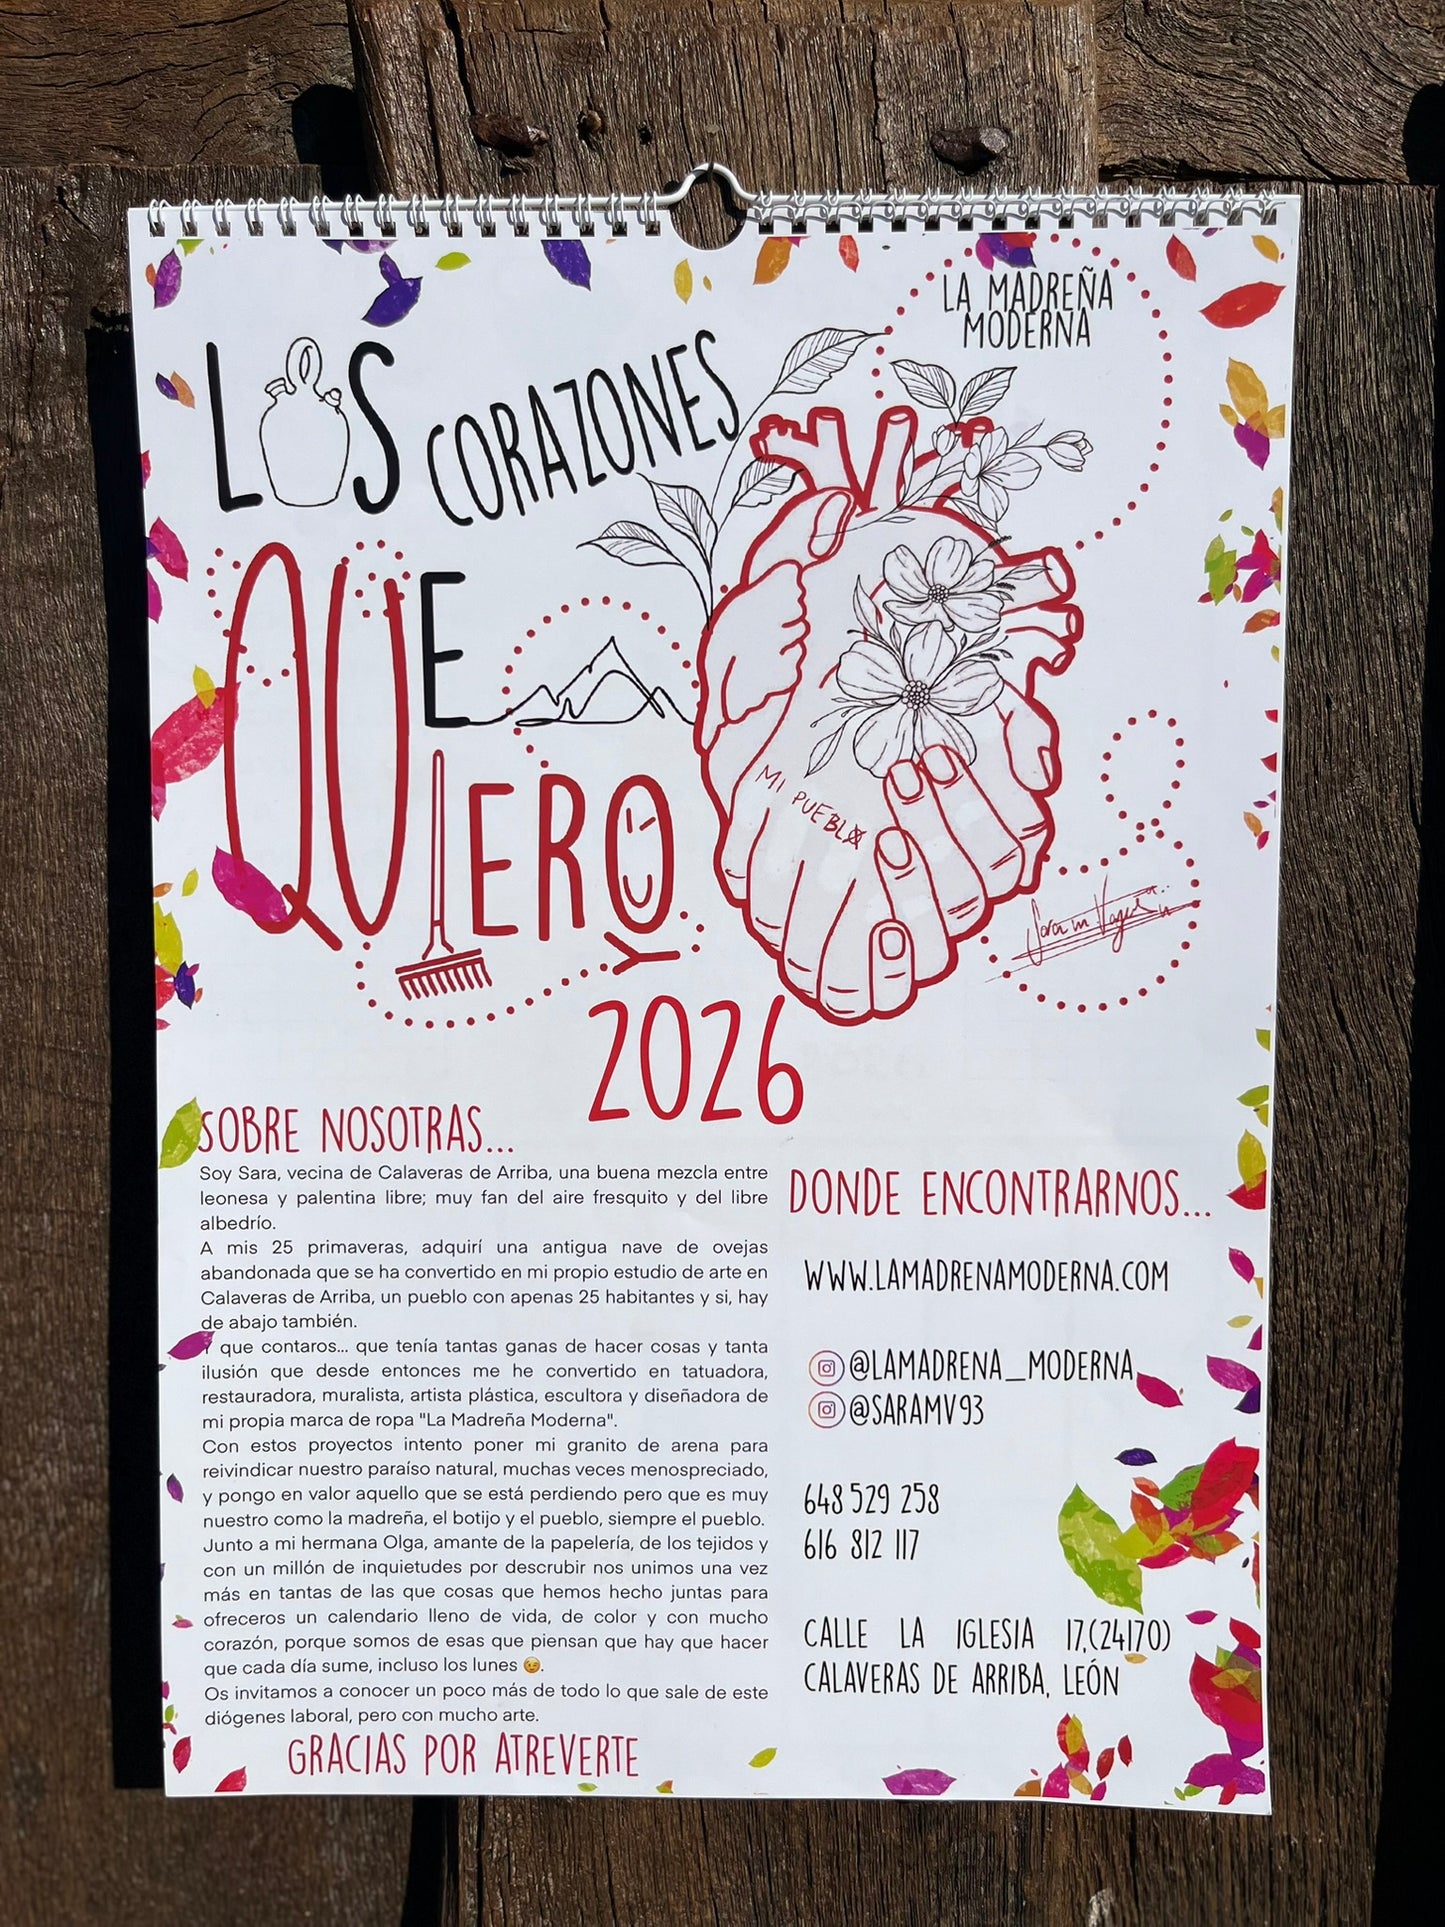 LA MADREÑA
MODERNA
LOS CORAZONES
QUE
QUIERO YO
MI PUEBLO
2026
SOBRE NOSOTRAS...
Soy Sara, vecina de Calaveras de Arriba, una buena mezcla entre
leonesa y palentina libre; muy fan del aire fresquito y del libre
albedrío.
A mis 25 primaveras, adquirí una antigua nave de ovejas
abandonada que se ha convertido en mi propio estudio de arte en
Calaveras de Arriba, un pueblo con apenas 25 habitantes y si, hay
de abajo también.
Y que contaros... que tenía tantas ganas de hacer cosas y tanta
ilusión que desde entonces me he convertido en tatuadora,
restauradora, muralista, artista plástica, escultora y diseñadora de
mi propia marca de ropa "La Madreña Moderna".
Con estos proyectos intento poner mi granito de arena para
reivindicar nuestro paraíso natural, muchas veces menospreciado,
y pongo en valor aquello que se está perdiendo pero que es muy
nuestro como la madreña, el botijo y el pueblo, siempre el pueblo.
Junto a mi hermana Olga, amante de la papelería, de los tejidos y
con un millón de inquietudes por descrubir nos unimos una vez
más en tantas de las que cosas que hemos hecho juntas para
ofreceros un calendario lleno de vida, de color y con mucho
corazón, porque somos de esas que piensan que hay que hacer
que cada día sume, incluso los lunes 😉.
Os invitamos a conocer un poco más de todo lo que sale de este
diógenes laboral, pero con mucho arte.
GRACIAS POR ATREVERTE
DONDE ENCONTRARNOS...
WWW.LAMADRENAMODERNA.COM
@LAMADRENA_MODERNA
@SARAMV93
648 529 258
616 812 117
CALLE LA IGLESIA 17,(24170)
CALAVERAS DE ARRIBA, LEÓN